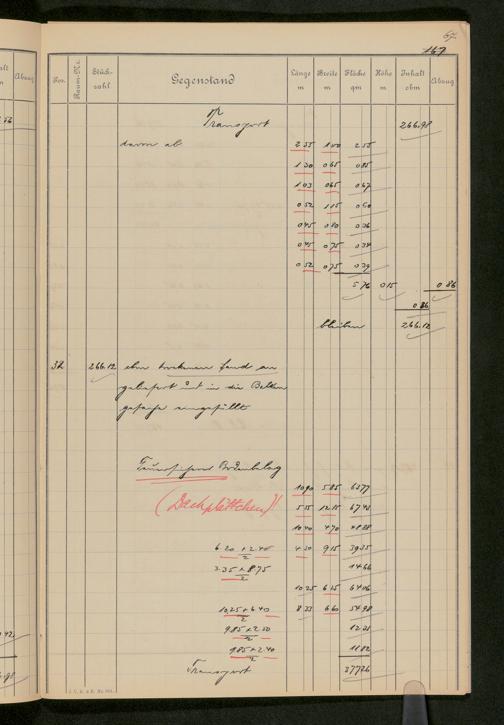 67.
167
Pos. Raum-Nr. Stückzahl Gegenstand Länge m Breite m Fläche qm Höhe m Inhalt cbm Abzug
Transport 266.98
davon ab 2 55 1 00 2 55
1 30 0 65 0 85
1 03 0 65 0 67
0 52 1 15 0 60
0 45 0 80 0 36
0 45 0 75 0 34
0 52 0 75 0 39
5 76 0 15 0 86
0 86
bleiben 266.12
32 266.12 cbm trockenen Sand an
geliefert und in die Balken
gefache eingefüllt
Feuersicherer Bodenbelag
(Dachplättchen)
10 90 5 85 63 77
5 55 12 15 67 43
10 40 4 70 48 88
6.20 + 2.40 / 2 4 30 9 15 39 35
3.35 × 8.75 / 2 14 66
10 25 6 15 64 06
10,25 × 6.40 / 2 8 33 6 60 54 98
9.85 × 2.50 / 2 12 31
9.85 × 2.40 / 2 11 82
Transport 377 26